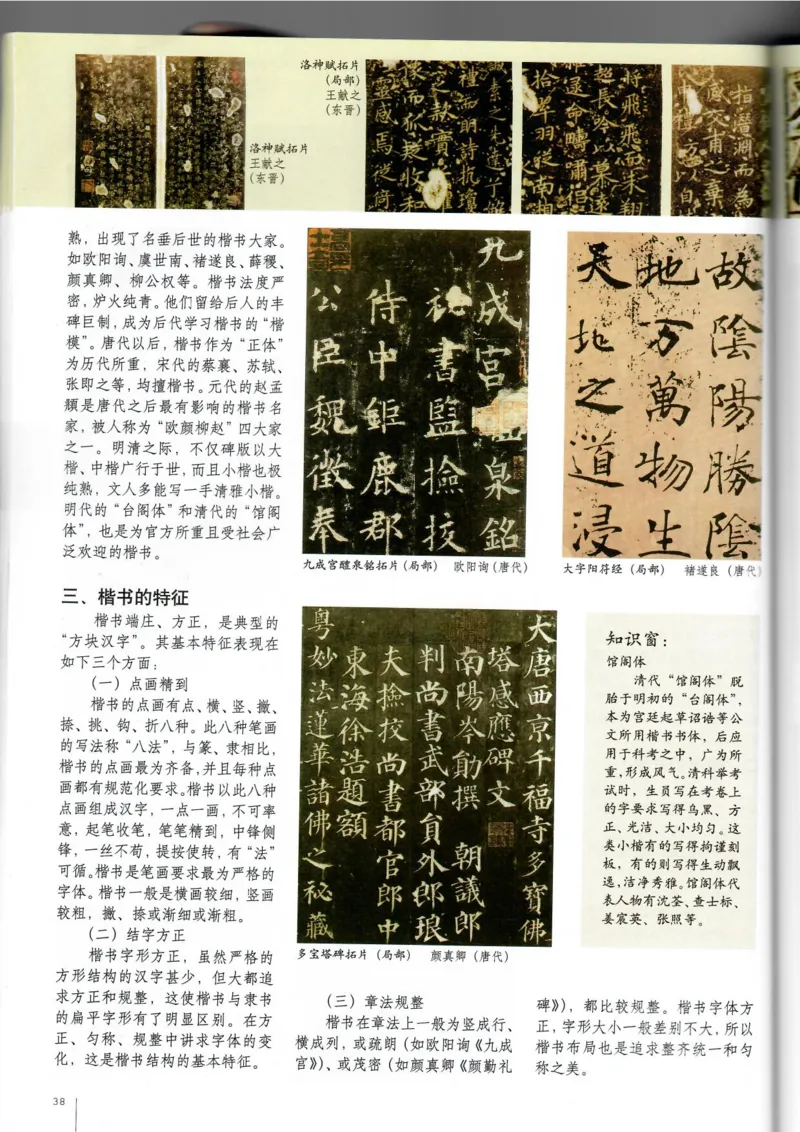 洛神赋拓片
(局部)
王献之
(东晋)
洛神赋拓片
王献之
(东晋)
熟，出现了名垂后世的楷书大家。
如欧阳询、虞世南、褚遂良、薛稷、
颜真卿、柳公权等。楷书法度严
密，炉火纯青。他们留给后人的丰
碑巨制，成为后代学习楷书的“楷
模”。唐代以后，楷书作为“正体”
为历代所重，宋代的蔡襄、苏轼、
张即之等，均擅楷书。元代的赵孟
頫是唐代之后最有影响的楷书名
家，被人称为“欧颜柳赵”四大家
之一。明清之际，不仅碑版以大
楷、中楷广行于世，而且小楷也极
纯熟，文人多能写一手清雅小楷。
明代的“台阁体”和清代的“馆阁
体”，也是为官方所重且受社会广
泛欢迎的楷书。
九成宫
泉铭
秘书监捡挍
侍中鉅鹿郡
公臣魏徵奉
九成宫醴泉铭拓片(局部) 欧阳询(唐代)
故陰陽勝陰
地万萬物生
天地之道浸
大字阳符经(局部) 褚遂良(唐代)
三、楷书的特征
楷书端庄、方正，是典型的
“方块汉字”。其基本特征表现在
如下三个方面：
(一)点画精到
楷书的点画有点、横、竖、撇、
捺、挑、钩、折八种。此八种笔画
的写法称“八法”，与篆、隶相比，
楷书的点画最为齐备，并且每种点
画都有规范化要求。楷书以此八种
点画组成汉字，一点一画，不可率
意，起笔收笔，笔笔精到，中锋侧
锋，一丝不苟，提按使转，有“法”
可循。楷书是笔画要求最为严格的
字体。楷书一般是横画较细，竖画
较粗，撇、捺或渐细或渐粗。
(二)结字方正
楷书字形方正，虽然严格的
方形结构的汉字甚少，但大都追
求方正和规整，这使楷书与隶书
的扁平字形有了明显区别。在方
正、匀称、规整中讲求字体的变
化，这是楷书结构的基本特征。
大唐西京千福寺多寶佛
塔感應碑文
南陽岑勛撰 朝議郎
判尚書武部員外郎琅
夫撿挍尚書都官郎中
東海徐浩題額
粤妙法蓮華諸佛之秘藏
多宝塔碑拓片(局部) 颜真卿(唐代)
知识窗：
馆阁体
清代“馆阁体”脱
胎于明初的“台阁体”，
本为宫廷起草诏诰等公
文所用楷书书体，后应
用于科考之中，广为所
重，形成风气。清科举考
试时，生员写在考卷上
的字要求写得乌黑、方
正、光洁、大小均匀。这
类小楷有的写得拘谨刻
板，有的则写得生动飘
逸，洁净秀雅。馆阁体代
表人物有沈荃、查士标、
姜宸英、张照等。
(三)章法规整
楷书在章法上一般为竖成行、
横成列，或疏朗(如欧阳询《九成
宫》)、或茂密(如颜真卿《颜勤礼
碑》)，都比较规整。楷书字体方
正，字形大小一般差别不大，所以
楷书布局也是追求整齐统一和匀
称之美。
38